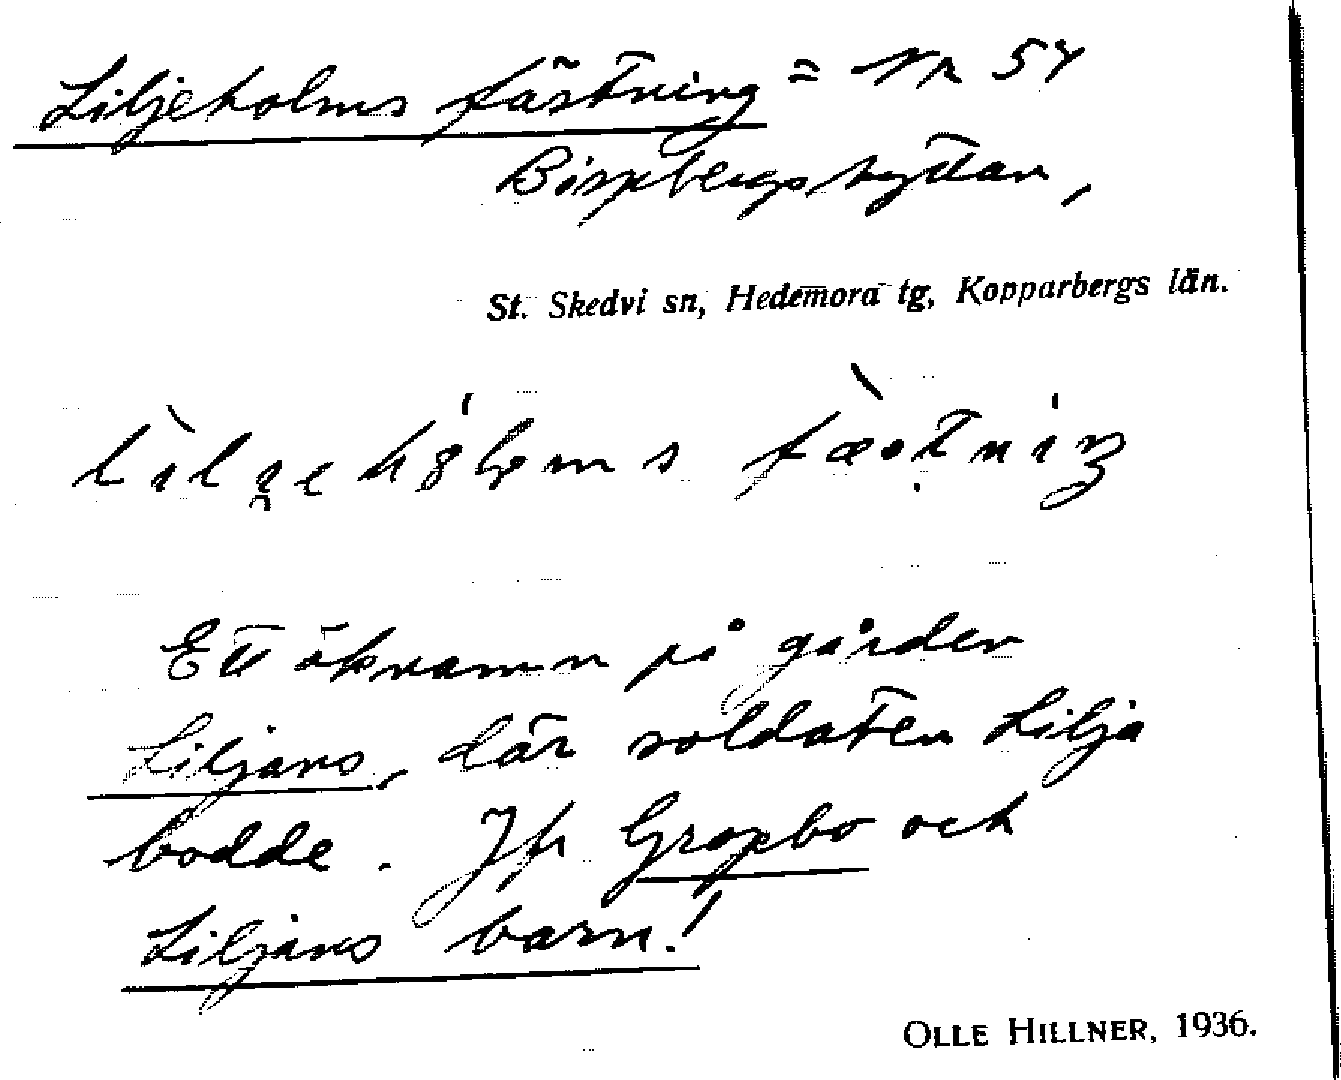 Liljeholms fästning = Nr 54
Bispbergshyttan,
St. Skedvi sn, Hedemora tg, Kopparbergs län.
fæstning
Ett öknamn på gården
Liljans, där soldaten Lilja
bodde. Jfr Gropbo och
Liljans barn!
OLLE HILLNER, 1936.